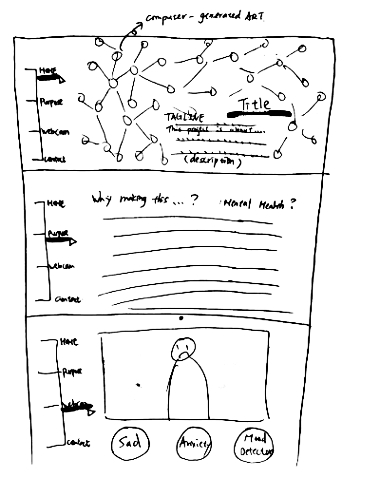 computer-generated ART
HOME
Purpose
webcam
contact
Title
TAGLINE
This project is about....
(description)
HOME
Purpose
webcam
contact
Why making this...? Mental Health?
HOME
Purpose
webcam
contact
Sad
Anxiety
Mood
Detector